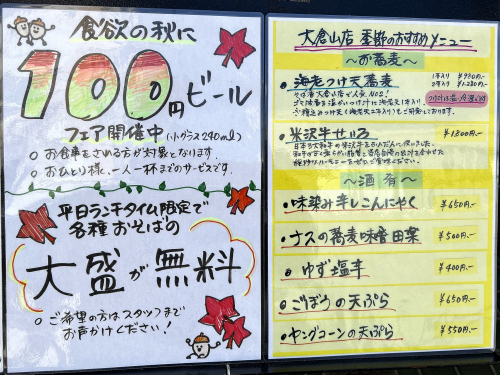 食欲の秋に
100円ビール
フェア開催中(小グラス240ml)
お食事をされる方が対象となります。
おひとり様、一人一杯までのサービスです。
平日ランチタイム限定で
各種おそばの
大盛が無料
ご希望の方はスタッフまで
お声がけください!
大倉山店 季節のおすすめメニュー
〜お蕎麦〜
海老つけ天蕎麦
1本入り ¥930円-
2本入り ¥1,230円-
そば清大倉山店で人気、NO.2!
つけ汁は温・冷選べます
米沢牛せいろ ¥1,800円-
〜酒肴〜
味染み芋しこんにゃく ¥650円-
ナスの蕎麦味噌田楽 ¥500円-
ゆず塩辛 ¥400円-
ごぼうの天ぷら ¥650円-
ヤングコーンの天ぷら ¥550円-